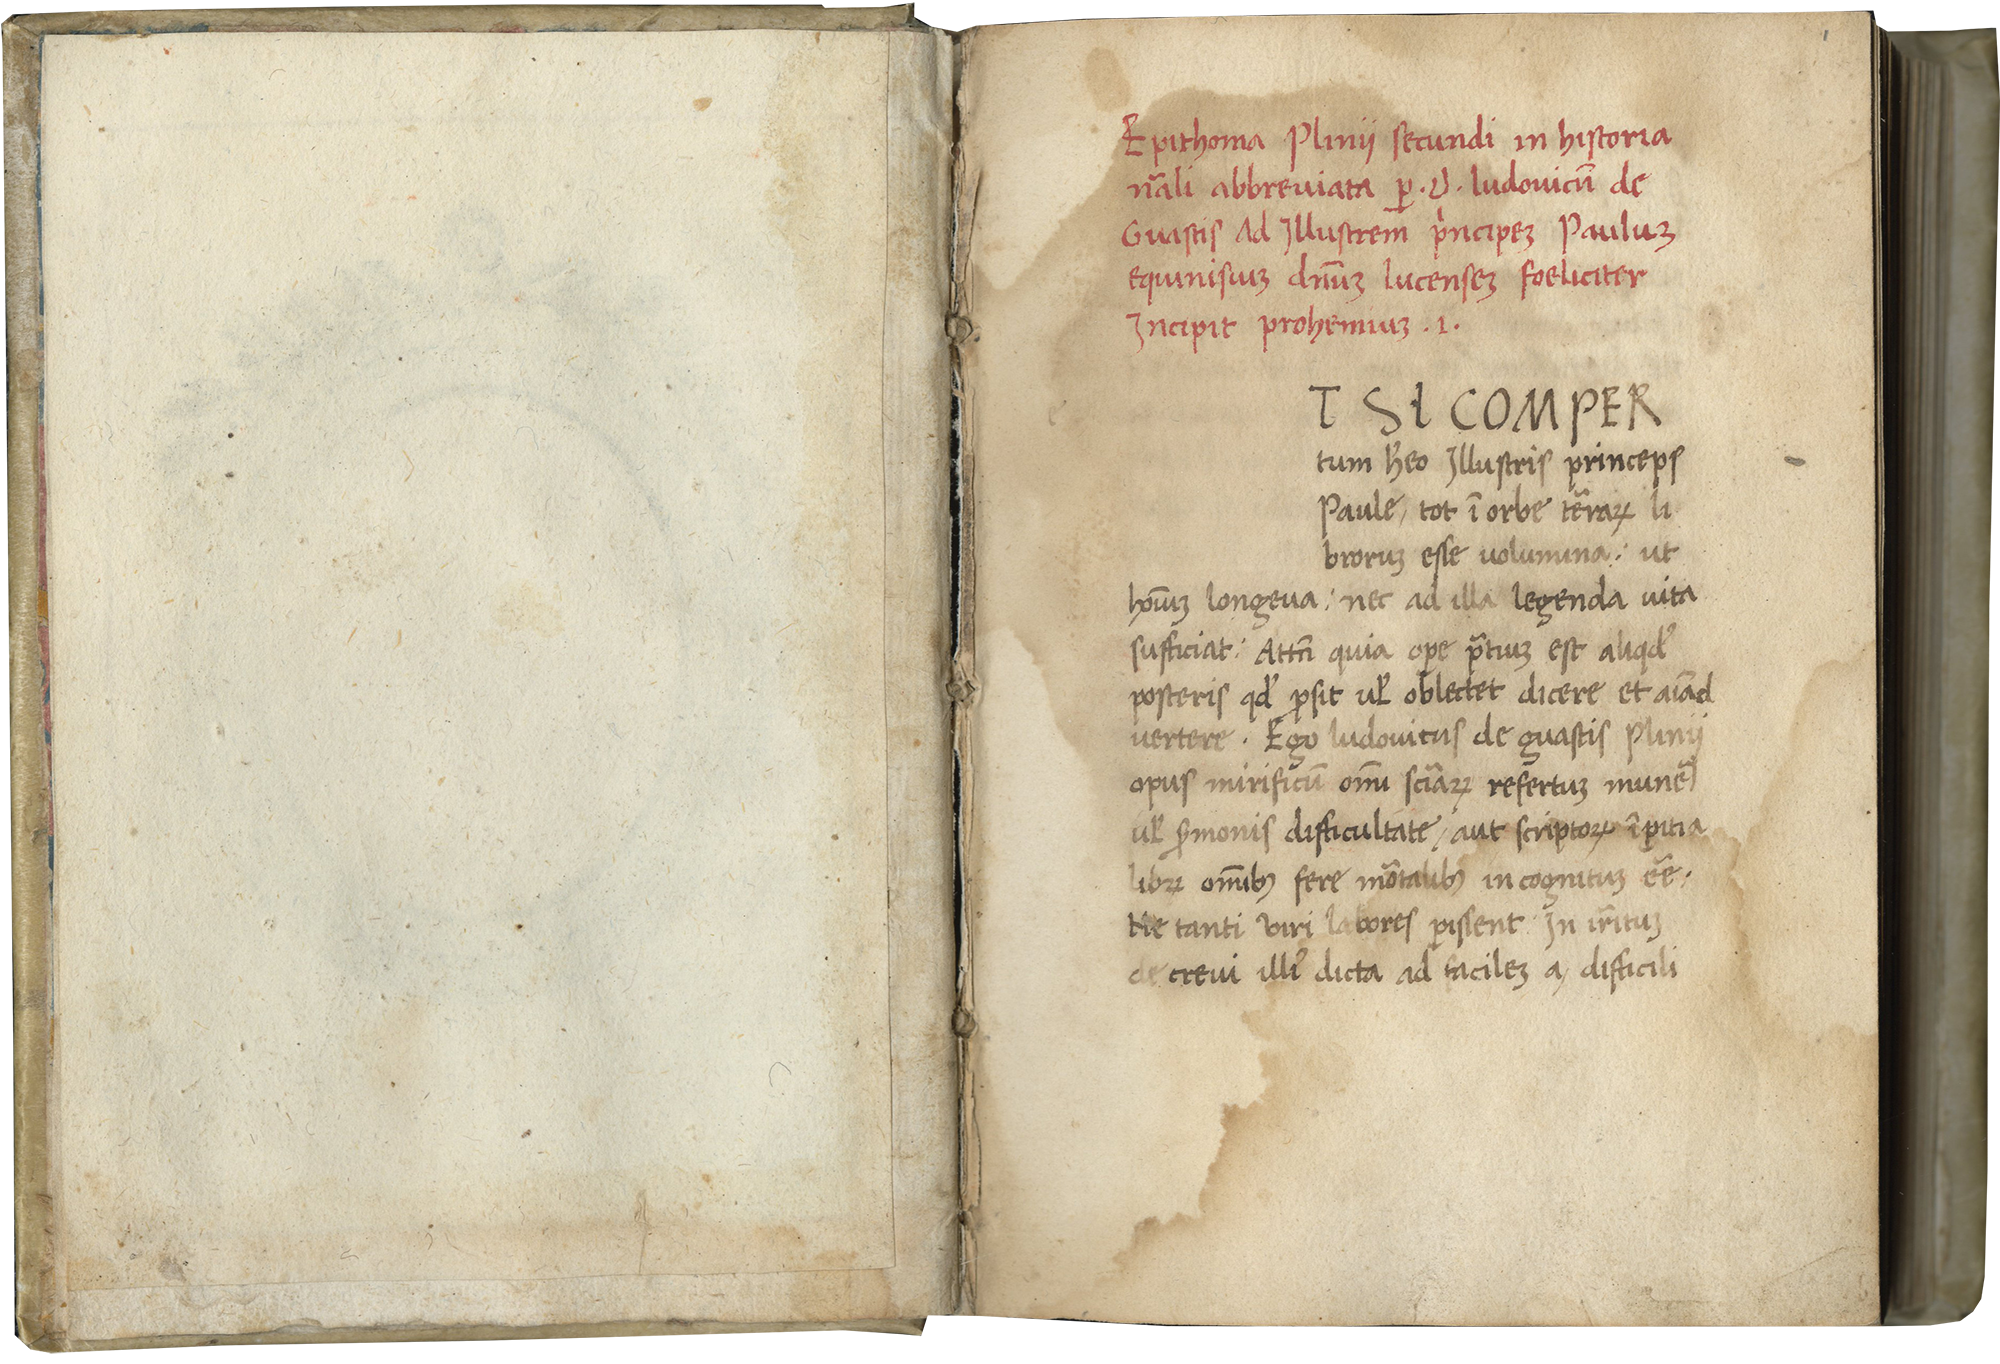 1
Epithoma Plinii secundi in historia
nãali abbreuiata ꝑ .D. ludouicũ de
Guastis Ad Illustrem̄ pͥncipeꝫ Pauluꝫ
equinisiuꝫ dnũꝫ lucenseꝫ foeliciter
Incipit prohemiuꝫ .1.
T SI COMPER
tum h̃eo Illustris princeps
Paule, tot ĩ orbe tẽraꝝ li
broruꝫ esse uolumina: ut
hoĩuꝫ longeua: nec ad illa legenda uita
sufficiat: Attñ quia ope p̃tiuꝫ est aliqđ
posteris qđ ꝓsit uł oblectet dicere et aĩad
uertere. Ego ludouicus de guastis Plinii
opus mirificũ oĩni sciãꝝ refertuꝫ munẽ
uł s̃monis difficultate, aut scriptoꝝ ĩꝑitia
libꝝ omĩbꝫ fere mõtalibꝫ incognituꝫ eẽ:
Ne tanti uiri labores ꝑissent In irr̃ituꝫ
decreui illiꝰ dicta ad facileꝫ a, difficili